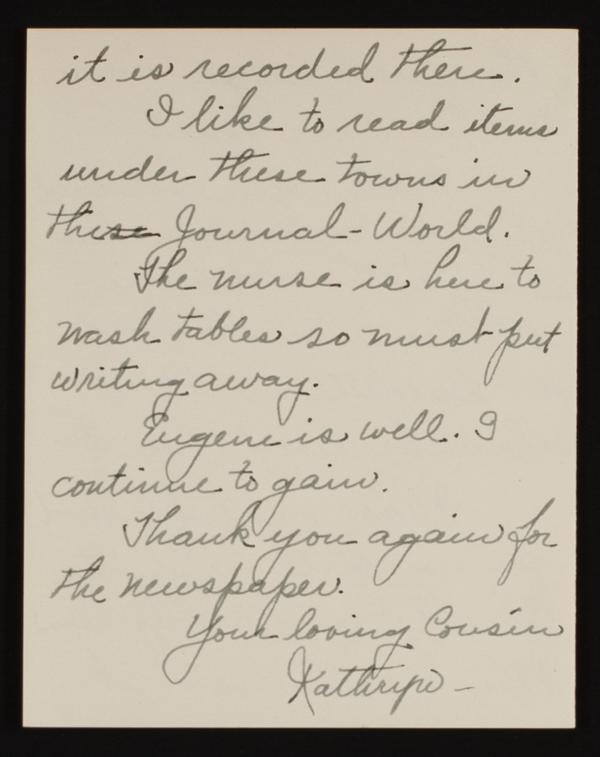 it is recorded there.
I like to read items
under these towns in
these Journal-World.
The nurse is here to
wash tables so must put
writing away.
Eugene is well. I
continue to gain.
Thank you again for
the newspaper.
Your loving Cousin
Kathryn -